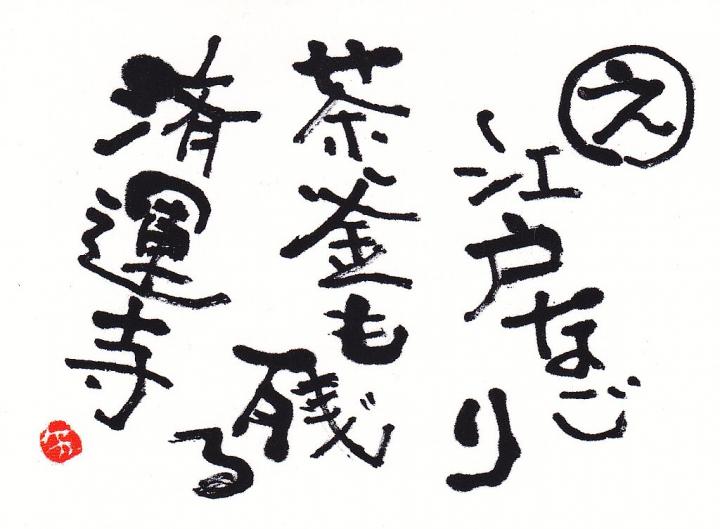 え
江戸なごり
茶釜も残る
済運寺